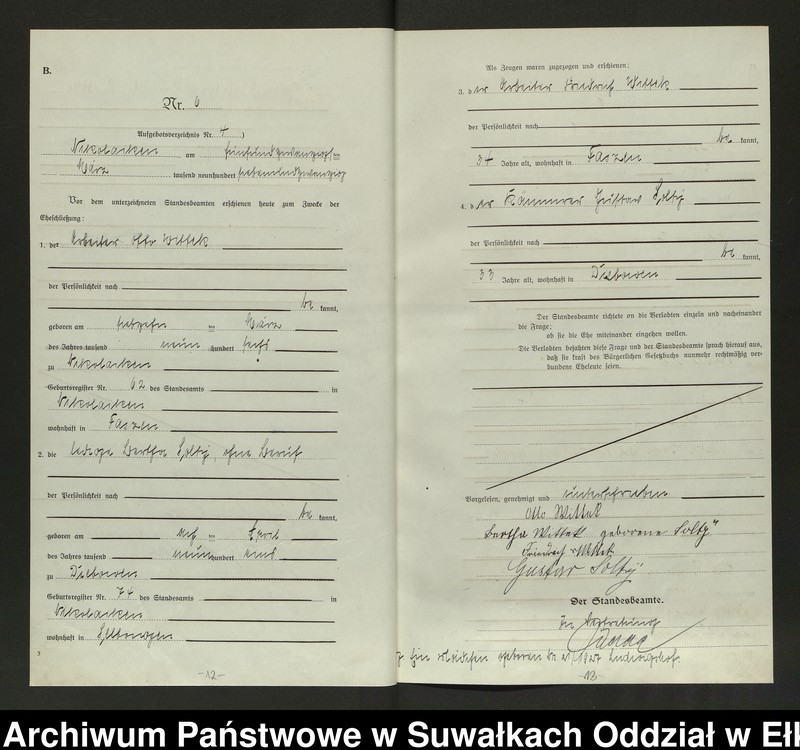 B.
Nr. 6
Aufgebotsverzeichnis Nr. 4 )
Nikolaiken am fünfundzwanzigsten
März tausend neunhundert siebenundzwanzig
Vor dem unterzeichneten Standesbeamten erschienen heute zum Zwecke der
Eheschließung:
1. der Arbeiter Otto Wittek
der Persönlichkeit nach
be kannt,
geboren am siebzehn ten März
des Jahres tausend neun hundert sechs
zu Nikolaiken
Geburtsregister Nr. 62 des Standesamts in
Nikolaiken
wohnhaft in Faszen
2. die ledige Bertha Solty, ohne Beruf
der Persönlichkeit nach
be kannt,
geboren am ten April
des Jahres tausend neun hundert
zu
Geburtsregister Nr. 74 des Standesamts
Nikolaiken
wohnhaft in
3
-12-
Als Zeugen waren zugezogen und erschienen:
3. der Arbeiter Friedrich Wittek
der Persönlichkeit nach
be kannt,
34 Jahre alt, wohnhaft in Faszen
4. der Kämmerer Gustav Solty
der Persönlichkeit nach
be kannt,
33 Jahre alt, wohnhaft in
Der Standesbeamte richtete an die Verlobten einzeln und nacheinander
die Frage:
ob sie die Ehe miteinander eingehen wollen.
Die Verlobten bejahten diese Frage und der Standesbeamte sprach hierauf aus,
daß sie kraft des Bürgerlichen Gesetzbuchs nunmehr rechtmäßig ver-
bundene Eheleute seien.
Vorgelesen, genehmigt und unterschrieben
Otto Wittek
Bertha Wittek geborene Solty
Friedrich Wittek
Gustav Solty
Der Standesbeamte.
In Vertretung
geboren Ludwigshof.
-13-
Archiwum Państwowe w Suwałkach Oddział w Eł